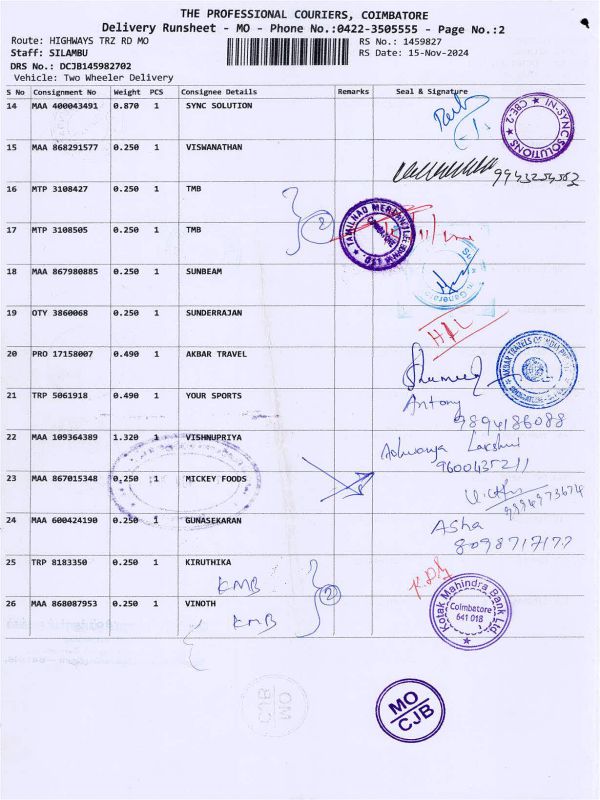 THE PROFESSIONAL COURIERS, COIMBATORE
Delivery Runsheet - MO - Phone No.:0422-3505555 - Page No.:2
Route: HIGHWAYS TRZ RD MO RS No.: 1459827
Staff: SILAMBU RS Date: 15-Nov-2024
DRS No.: DCJB145982702
Vehicle: Two Wheeler Delivery
S No Consignment No Weight PCS Consignee Details Remarks Seal & Signature
14 MAA 400043491 0.870 1 SYNC SOLUTION
IN-SYNC SOLUTIONS CBE-2
15 MAA 868291577 0.250 1 VISWANATHAN
16 MTP 3108427 0.250 1 TMB
2
17 MTP 3108505 0.250 1 TMB
TAMILNAD MERCANTILE BANK LTD
COIMBATORE
18 MAA 867980885 0.250 1 SUNBEAM
19 OTY 3860068 0.250 1 SUNDERRAJAN
20 PRO 17158007 0.490 1 AKBAR TRAVEL
21 TRP 5061918 0.490 1 YOUR SPORTS Antony
9894186088
22 MAA 109364389 1.320 1 VISHNUPRIYA Lakshmi
9600435211
23 MAA 867015348 0.250 1 MICKEY FOODS
9994973674
24 MAA 600424190 0.250 1 GUNASEKARAN Asha
8098717177
25 TRP 8183350 0.250 1 KIRUTHIKA
KMB 2
26 MAA 868087953 0.250 1 VINOTH
KMB
Kotak Mahindra Bank Ltd
Coimbatore
641 018
MO
CJB
MO
CJB